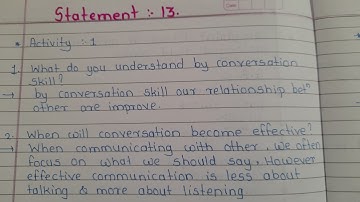 Statement :- 13.
* Activity :- 1
1. What do you understand by conversation
skill?
→ by conversation skill our relationship betn
other are improve.
2. When will conversation become effective?
→ When communicating with other, we often
focus on what we should say. However
effective communication is less about
talking & more about listening